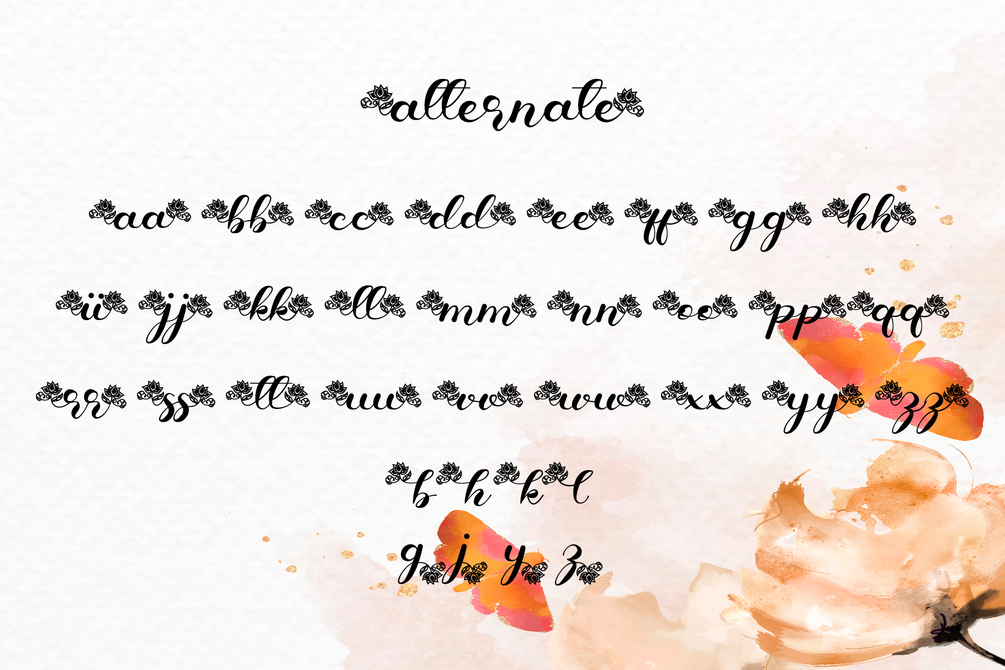 alternate
aa bb cc dd ee ff gg hh
ii jj kk ll mm nn oo pp qq
rr ss tt uu vv ww xx yy zz
b h k l
g j y z